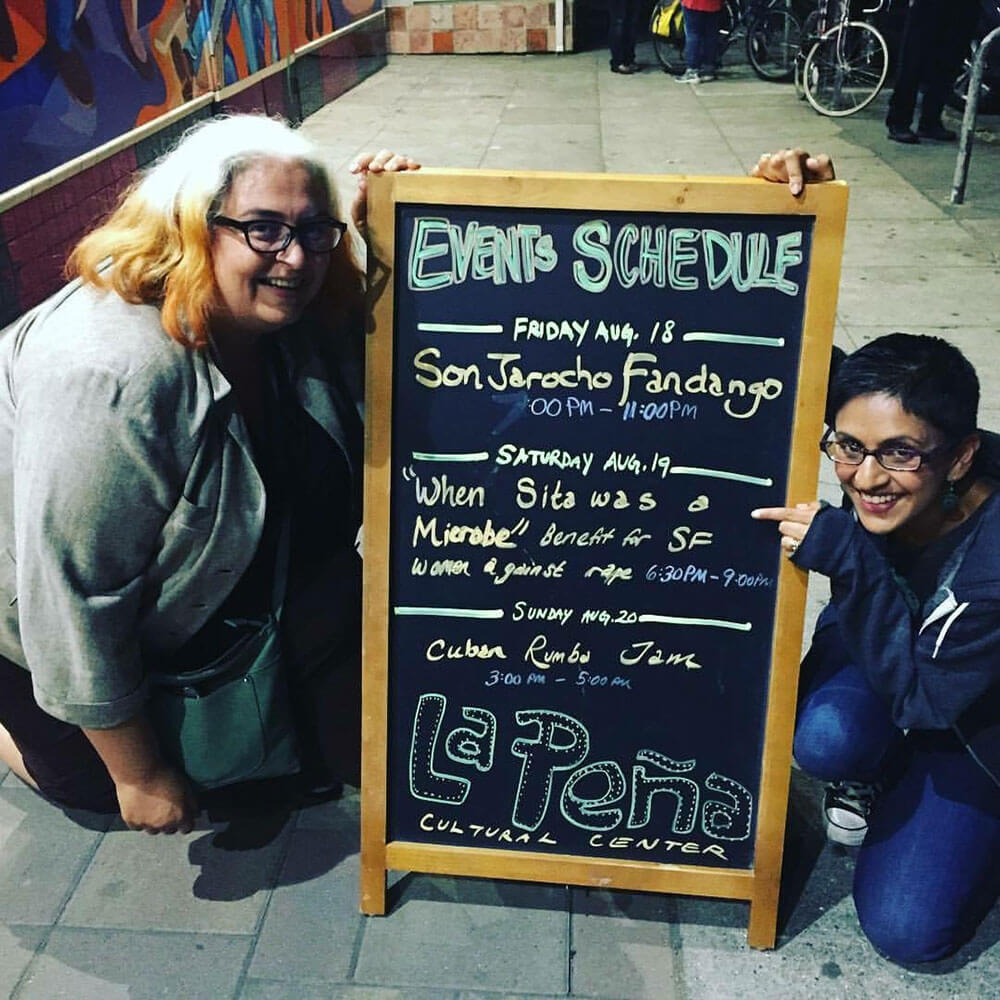 EVENTS SCHEDULE
FRIDAY AUG. 18
Son Jarocho Fandango
:00 PM – 11:00 PM
SATURDAY AUG. 19
"When Sita was a
Microbe" Benefit for SF
women against rape 6:30 PM – 9:00 PM
SUNDAY AUG. 20
Cuban Rumba Jam
3:00 PM – 5:00 PM
La Peña
CULTURAL CENTER